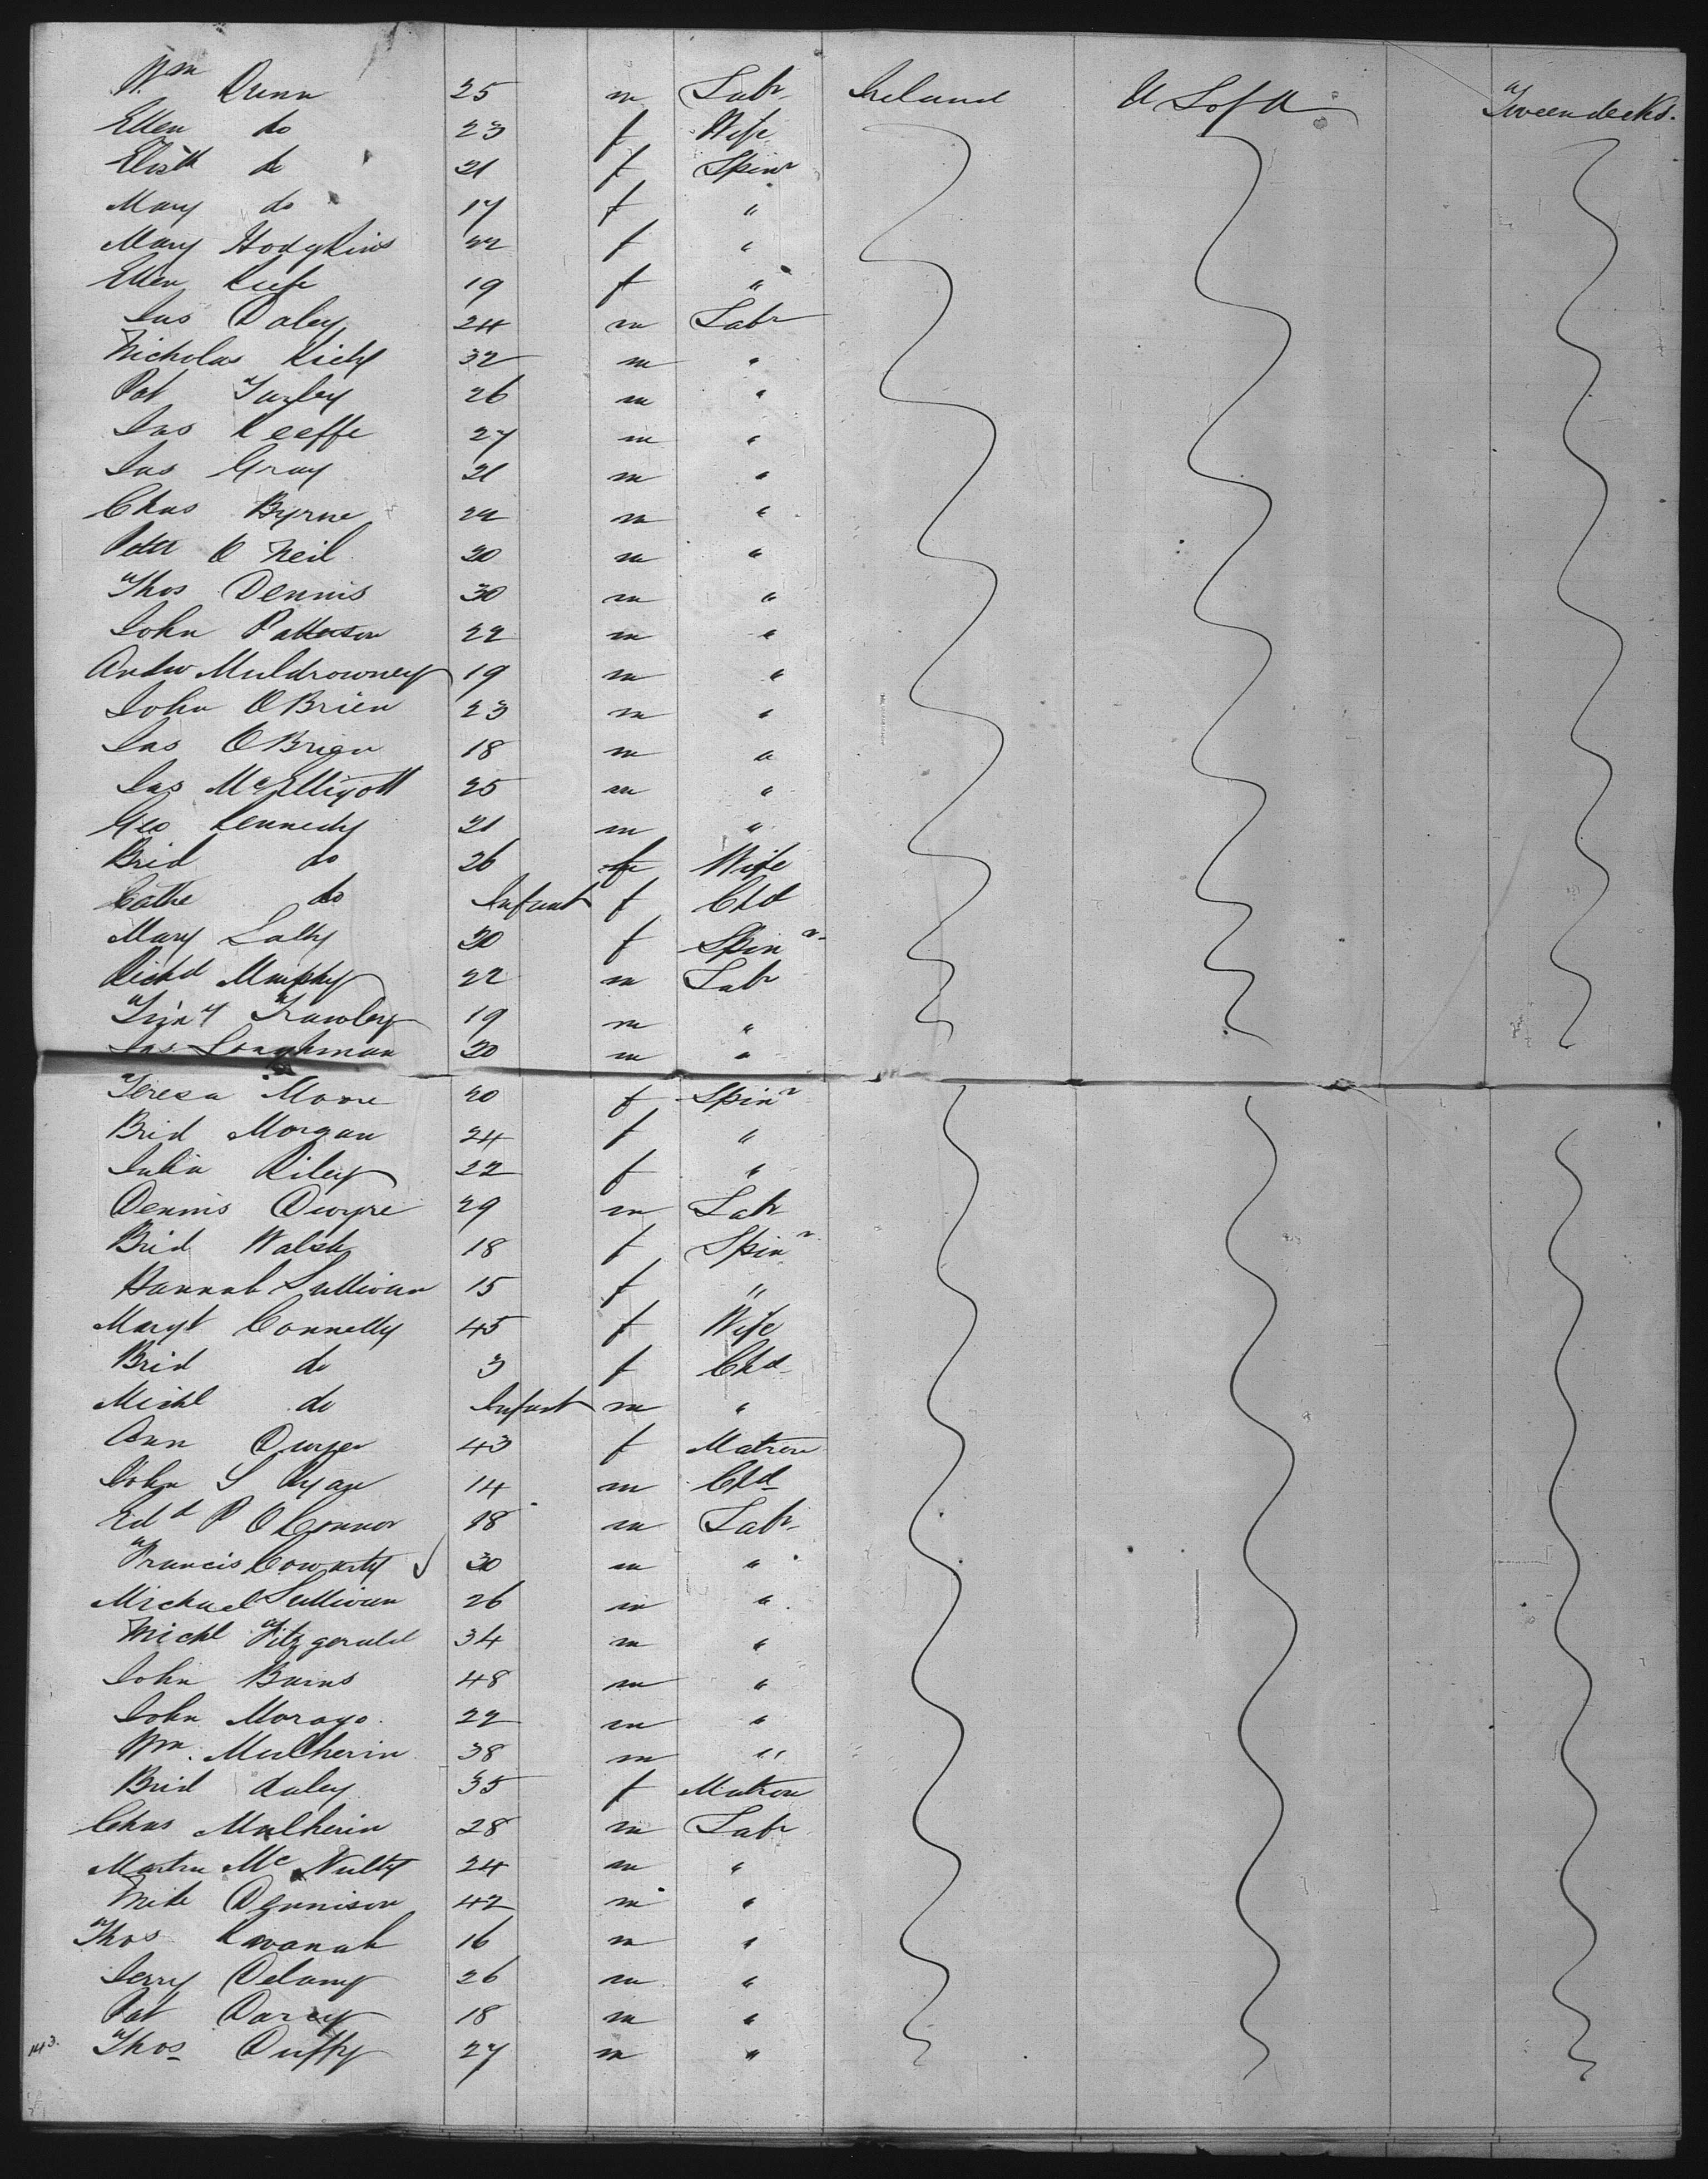 Wm Dunn 25 m Labr Ireland U S of A Tweendecks.
Ellen do 23 f Wife
Elizth do 21 f Spinr
Mary do 17 f "
Mary Hodgkins 22 f "
Ellen Keefe 19 f "
Jas Daley 24 m Labr
Nicholas 32 m "
Pat 26 m "
Jas Keeffe 27 m "
Jas Gray 21 m "
Chas Byrne 22 m "
Peter O Neil 20 m "
Thos Dennis 30 m "
John Patterson 22 m "
Andw Muldrowney 19 m "
John OBrien 23 m "
Jas OBrien 18 m "
Jas McElligott 25 m "
Geo Kennedy 21 m "
Brid do 26 f Wife
Cathe do Infant f Chd
Mary Lally 20 f Spinr
Richd Murphy 22 m Labr
Timy 19 m "
Jas Loughman 20 m "
Teresa Moore 20 f Spinr
Brid Morgan 24 f "
Julia Riley 22 f "
Dennis Dwyre 29 m Labr
Brid Walsh 18 f Spinr
Hannah Sullivan 15 f "
Margt Connelly 45 f Wife
Brid do 3 f Chd
Michl do Infant m "
Ann Dwyer 43 f Matron
John S Ryan 14 m Chd
Edd P OConnor 18 m Labr
Francis 30 m "
Michael Sullivan 26 m "
Michl Fitzgerald 34 m "
John Burns 48 m "
John 22 m "
Wm. Mulherin 38 m "
Brid daley 35 f Matron
Chas Mulherin 28 m Labr
Martin Mc Nulty 24 m "
Mike Dennison 42 m "
Thos Kavanah 16 m "
Jerry Delany 26 m "
Pat Darcy 18 m "
143. Thos Duffy 27 m "